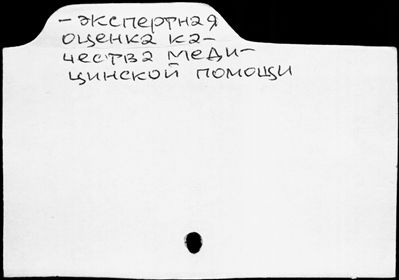 - экспертная
оценка ка-
чества меди-
цинской помощи